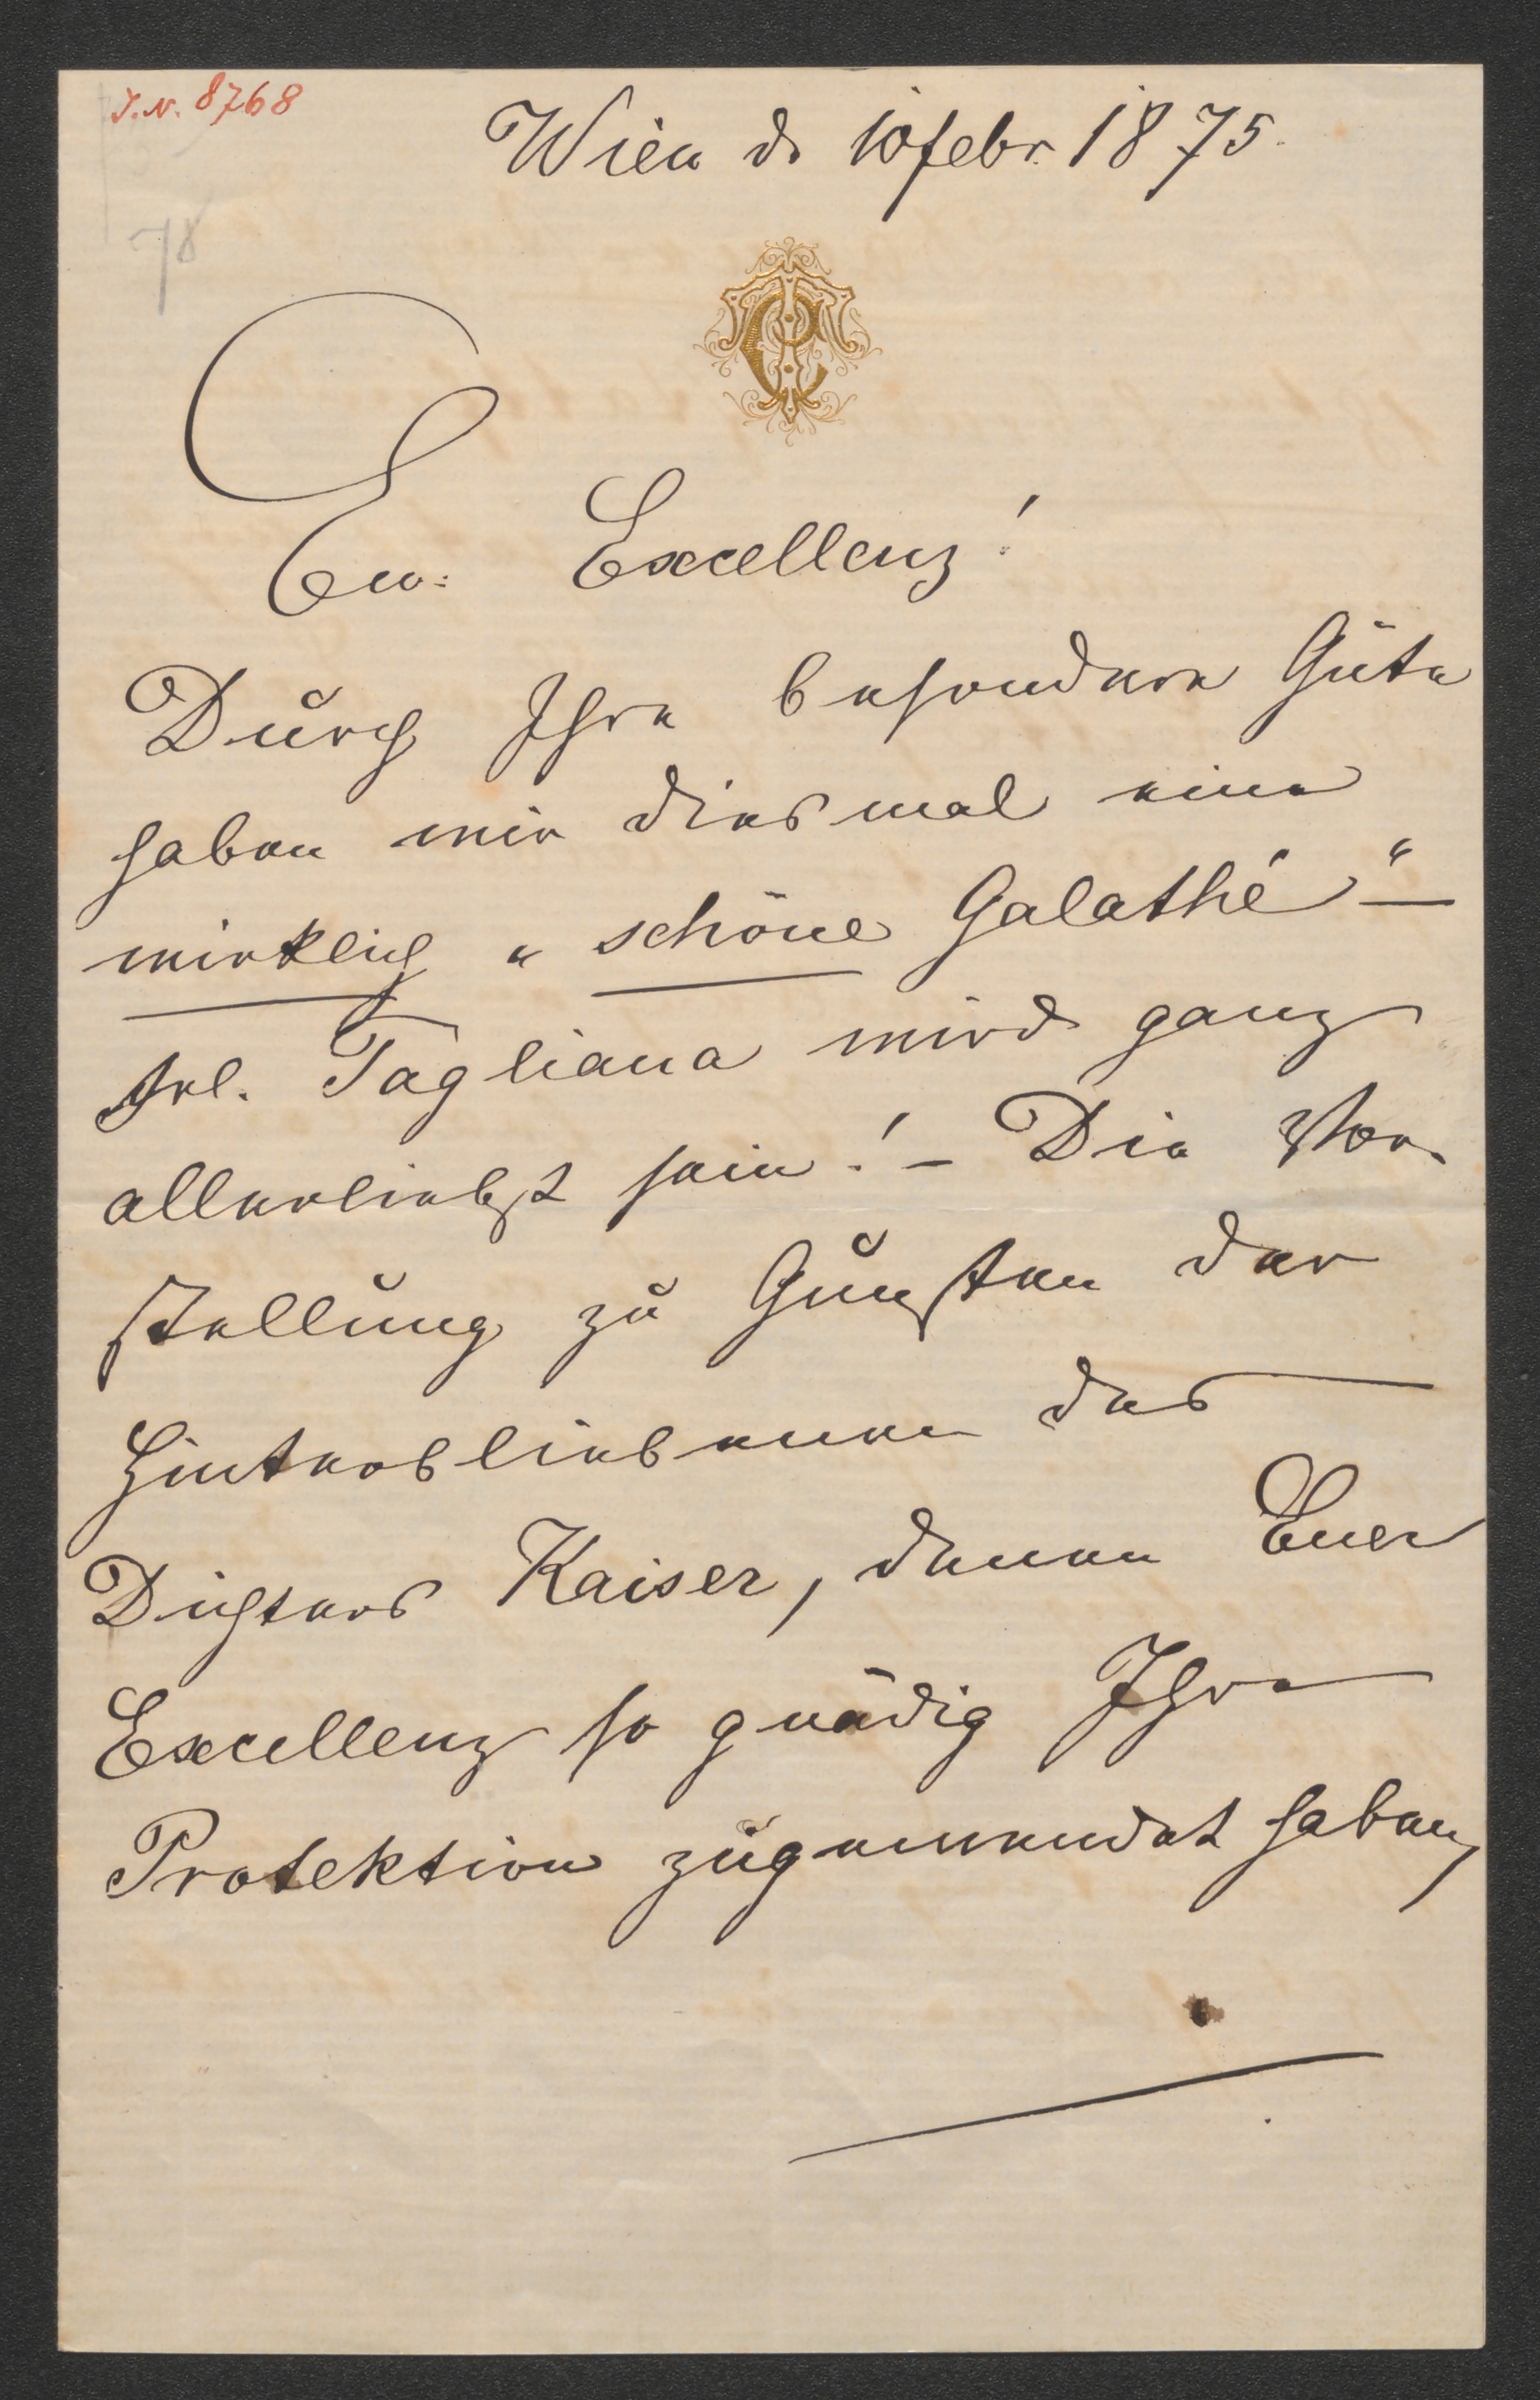 J.N. 8768
Wien d. 10 febr. 1875.
78
Ew: Excellenz!
Durch Ihre besondere Güte
haben wir diesmal eine
wirklich „schöne Galathé“ —
Frl. Tagliana wird ganz
allerliebst sein! – Die Vor-
stellung zu Gunsten der
Hinterbliebenen des
Dichters Kaiser, denen Euer
Excellenz so gnädig Ihre
Protektion zugewendet haben,